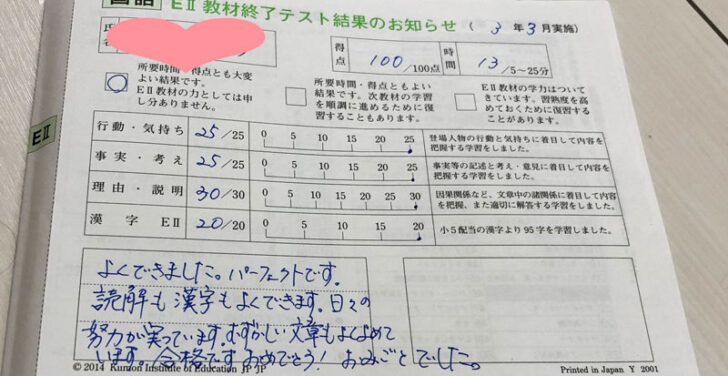 国語 EⅡ教材終了テスト結果のお知らせ ( 3 年 3 月実施)
氏名
得点 100/100点 時間 13/5~25分
所要時間・得点とも大変よい結果です。
EⅡ教材の力としては申し分ありません。
所要時間・得点ともよい
結果です。次教材の学習
を順調に進めるために復
習することもあります。
EⅡ教材の学力はついて
きています。習熟度を高
めておくために復習する
ことがあります。
EⅡ
行動・気持ち 25/25 0 5 10 15 20 25 登場人物の行動と気持ちに着目して内容を
把握する学習をしました。
事実・考え 25/25 0 5 10 15 20 25 事実等の記述と考え・意見に着目して内容を
把握する学習をしました。
理由・説明 30/30 0 5 10 15 20 25 30 因果関係など、文章中の諸関係に着目して内容
を把握、また適切に解答する学習をしました。
漢字 EⅡ 20/20 0 5 10 15 20 小5配当の漢字より95字を学習しました。
よくできました。パーフェクトです。
読解も漢字もよくできます。日々の
努力が実っています。むずかしい文章もよくよめて
います。合格です おめでとう! おみごとでした。
© 2014 Kumon Institute of Education JP JP Printed in Japan Y 2001